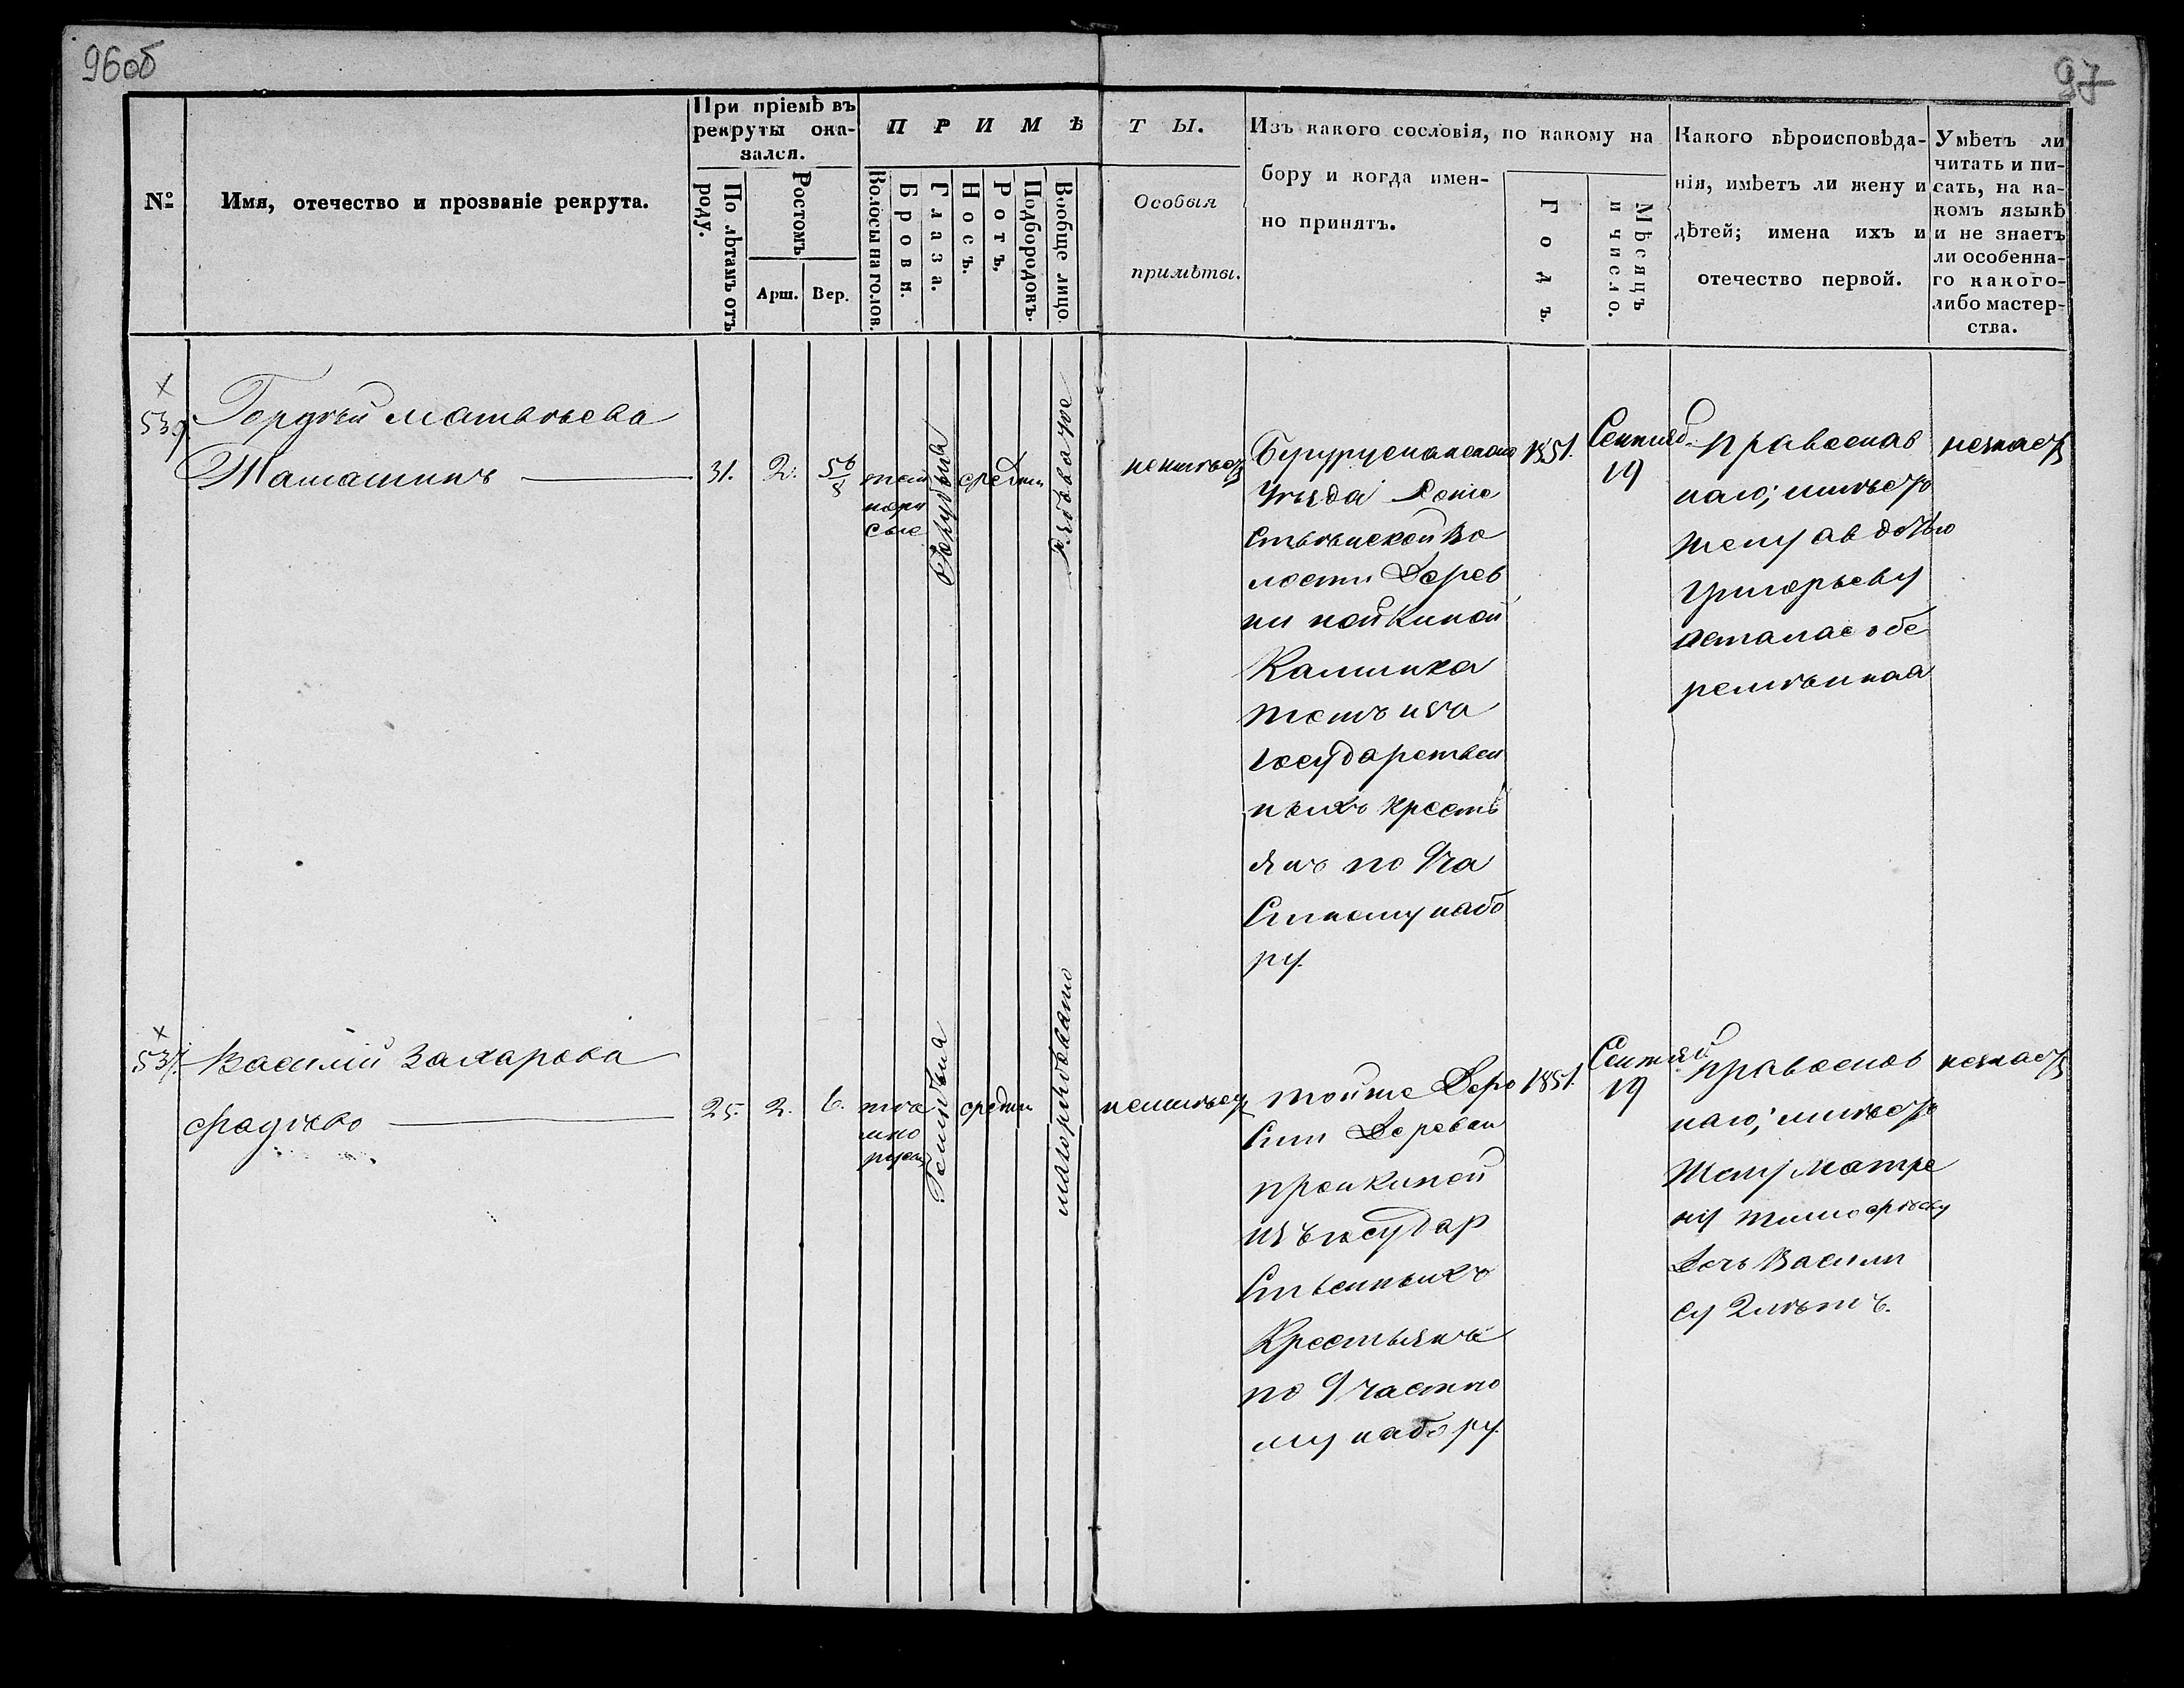 96об
97
№
Имя, отечество и прозваніе рекрута.
При пріемѣ въ
рекруты ока-
зался.
По лѣтамъ отъ
роду.
Ростомъ
Арш. Вер.
ПРИМѢ
ТЫ.
Волосы на голов.
Брови.
Глаза.
Носъ.
Ротъ,
Подбородокъ.
Вообще лицо.
Особыя
примѣты.
Изъ какого сословія, по какому на
бору и когда имен-
но принятъ.
Годъ.
Мѣсяцъ
и число.
Какого вѣроисповѣда-
нія, имѣетъ ли жену и
дѣтей; имена ихъ и
отечество первой.
Умѣетъ ли
читать и пи-
сать, на ка-
комъ языкѣ
и не знаетъ
ли особенна-
го какого-
либо мастер-
ства.
Гордѣй Матвѣева
31. 2. 5 6/8
средни
Рябоватое
неимѣетъ
Бугурусланскаго
Уѣзда
волости Дерев
ни
Камышка
тожъ изъ
государствен
ныхъ кресть
янъ по 9 ча
стному набо
ру.
1851.
Сентяб.
19
Православ
наго, имѣетъ
жену Авдотью
Григорьеву
осталась бе
ременная
незнаетъ
537. Василій Захарова
25. 2. 6.
темно
русыя
средни
неимѣетъ
тойже Воло
сти Деревни
пронкиной
изъ государ
ственныхъ
Крестьянъ
по 9 частно
му набору
1851.
Сентяб.
19
Православ
наго, имѣетъ
Жену Матре
ну Тимофѣеву
Дочь Васили
су 2 лѣтъ.
незнаетъ